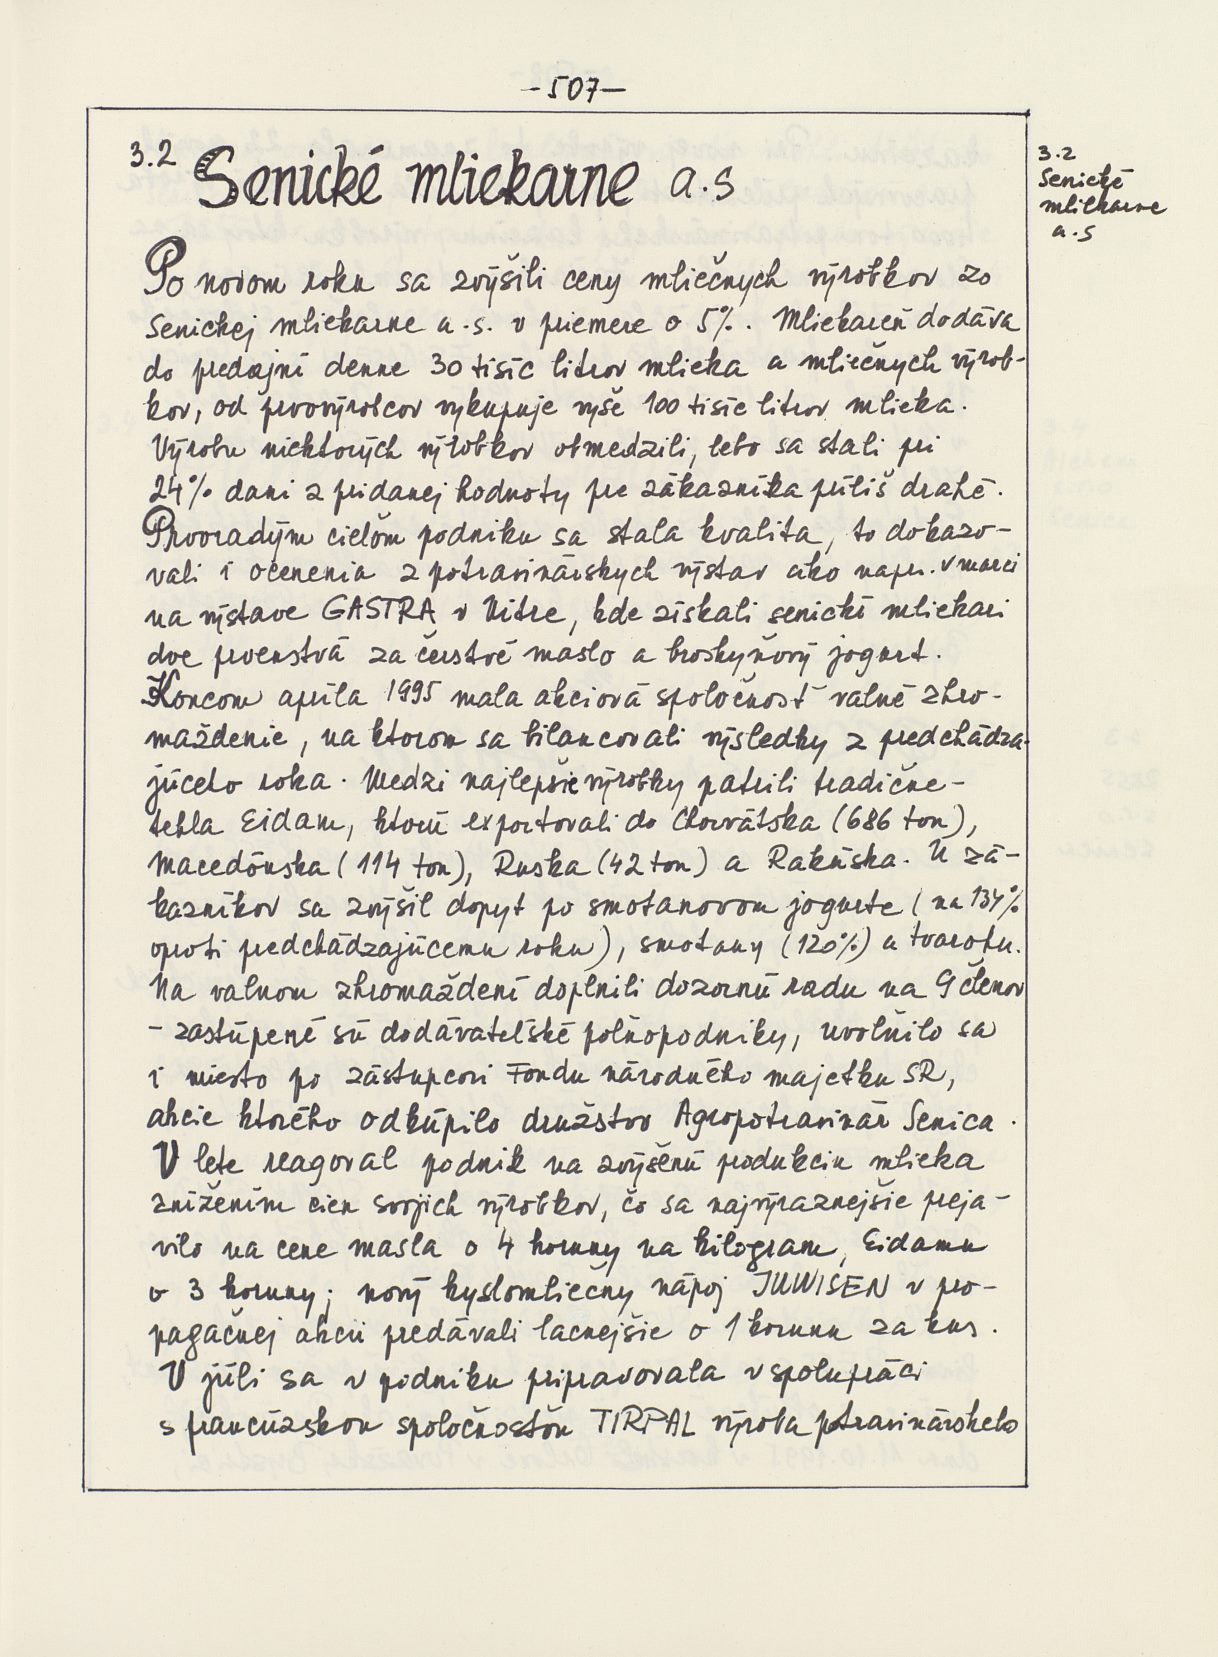 -507-
3.2 Senické mliekarne a.s
3.2
Senické
mliekarne
a.s
Po novom roku sa zvýšili ceny mliečnych výrobkov zo
Senickej mliekarne a.s. v priemere o 5%. Mliekareň dodáva
do predajní denne 30 tisíc litrov mlieka a mliečnych výrob-
kov, od prvovýrobcov vykupuje vyše 100 tisíc litrov mlieka.
Výrobu niektorých výrobkov obmedzili, lebo sa stali pri
24% dani z pridanej hodnoty pre zákazníka príliš drahé.
Prvoradým cieľom podniku sa stala kvalita, to dokazo-
vali i ocenenia z potravinárskych výstav ako napr. v marci
na výstave GASTRA v Nitre, kde získali senickí mliekari
dve prvenstvá za čerstvé maslo a broskyňový jogurt.
Koncom apríla 1995 mala akciová spoločnosť valné zhro-
maždenie, na ktorom sa bilancovali výsledky z predchádza-
júceho roka. Medzi najlepšie výrobky patrili tradične-
tehla Eidam, ktorú exportovali do Chorvátska (686 ton),
Macedónska (114 ton), Ruska (42 ton) a Rakúska. U zá-
kazníkov sa zvýšil dopyt po smotanovom jogurte (na 134%
oproti predchádzajúcemu roku), smotany (120%) a tvarohu.
Na valnom zhromaždení doplnili dozornú radu na 9 členov
- zastúpené sú dodávateľské poľnopodniky, uvoľnilo sa
i miesto po zástupcovi Fondu národného majetku SR,
akcie ktorého odkúpilo družstvo Agropotravinár Senica.
V lete reagoval podnik na zvýšenú produkciu mlieka
znížením cien svojich výrobkov, čo sa najvýraznejšie preja-
vilo na cene masla o 4 koruny na kilogram, Eidamu
o 3 koruny; nový kyslomliečny nápoj JUWISEN v pro-
pagačnej akcii predávali lacnejšie o 1 korunu za kus.
V júli sa v podniku pripravovala v spolupráci
s francúzskou spoločnosťou TIRPAL výroba potravinárskeho